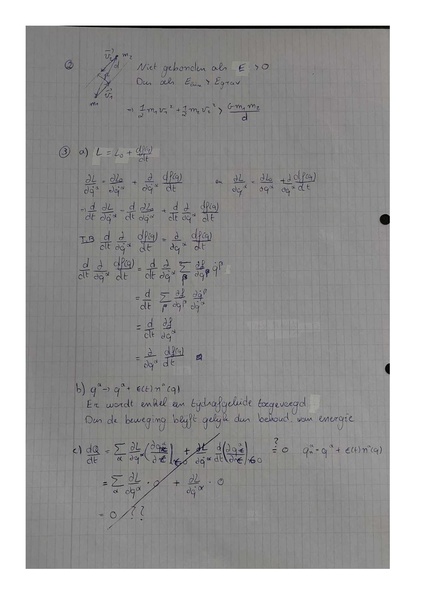 ② v₁ d m₂
Niet gebonden als E > 0
v₂ Dus als E_kin > E_grav
m₁ → ½ m₁v₁² + ½ m₂v₂² > G m₁ m₂ / d
③ a) L = L₀ + df(q)/dt
∂L/∂q̇^α = ∂L₀/∂q̇^α + ∂/∂q̇^α df(q)/dt en ∂L/∂q^α = ∂L₀/∂q^α + ∂/∂q^α df(q)/dt
→ d/dt ∂L/∂q̇^α = d/dt ∂L₀/∂q̇^α + d/dt ∂/∂q̇^α df(q)/dt
T.B. d/dt ∂/∂q̇^α df(q)/dt = ∂/∂q^α df(q)/dt
d/dt ∂/∂q̇^α df(q)/dt = d/dt ∂/∂q̇^α ∑_β ∂f/∂q^β q̇^β
= d/dt ∑_β ∂f/∂q^β ∂q̇^β/∂q̇^α
= d/dt ∂f/∂q^α
= ∂/∂q^α df(q)/dt
b) q^α → q^α + ε(t) n^α(q)
Er wordt enkel een tijdsafgeleide toegevoegd
Dus de beweging blijft gelijk dus behoud van energie
c) dQ/dt = ∑_α ∂L/∂q^α + ∂L/∂q̇^α d/dt ≟ 0 q^α → q^α + ε(t) n^α(q)
= ∑_α ∂L/∂q^α · 0 + ∂L/∂q̇^α · 0
= 0 ??